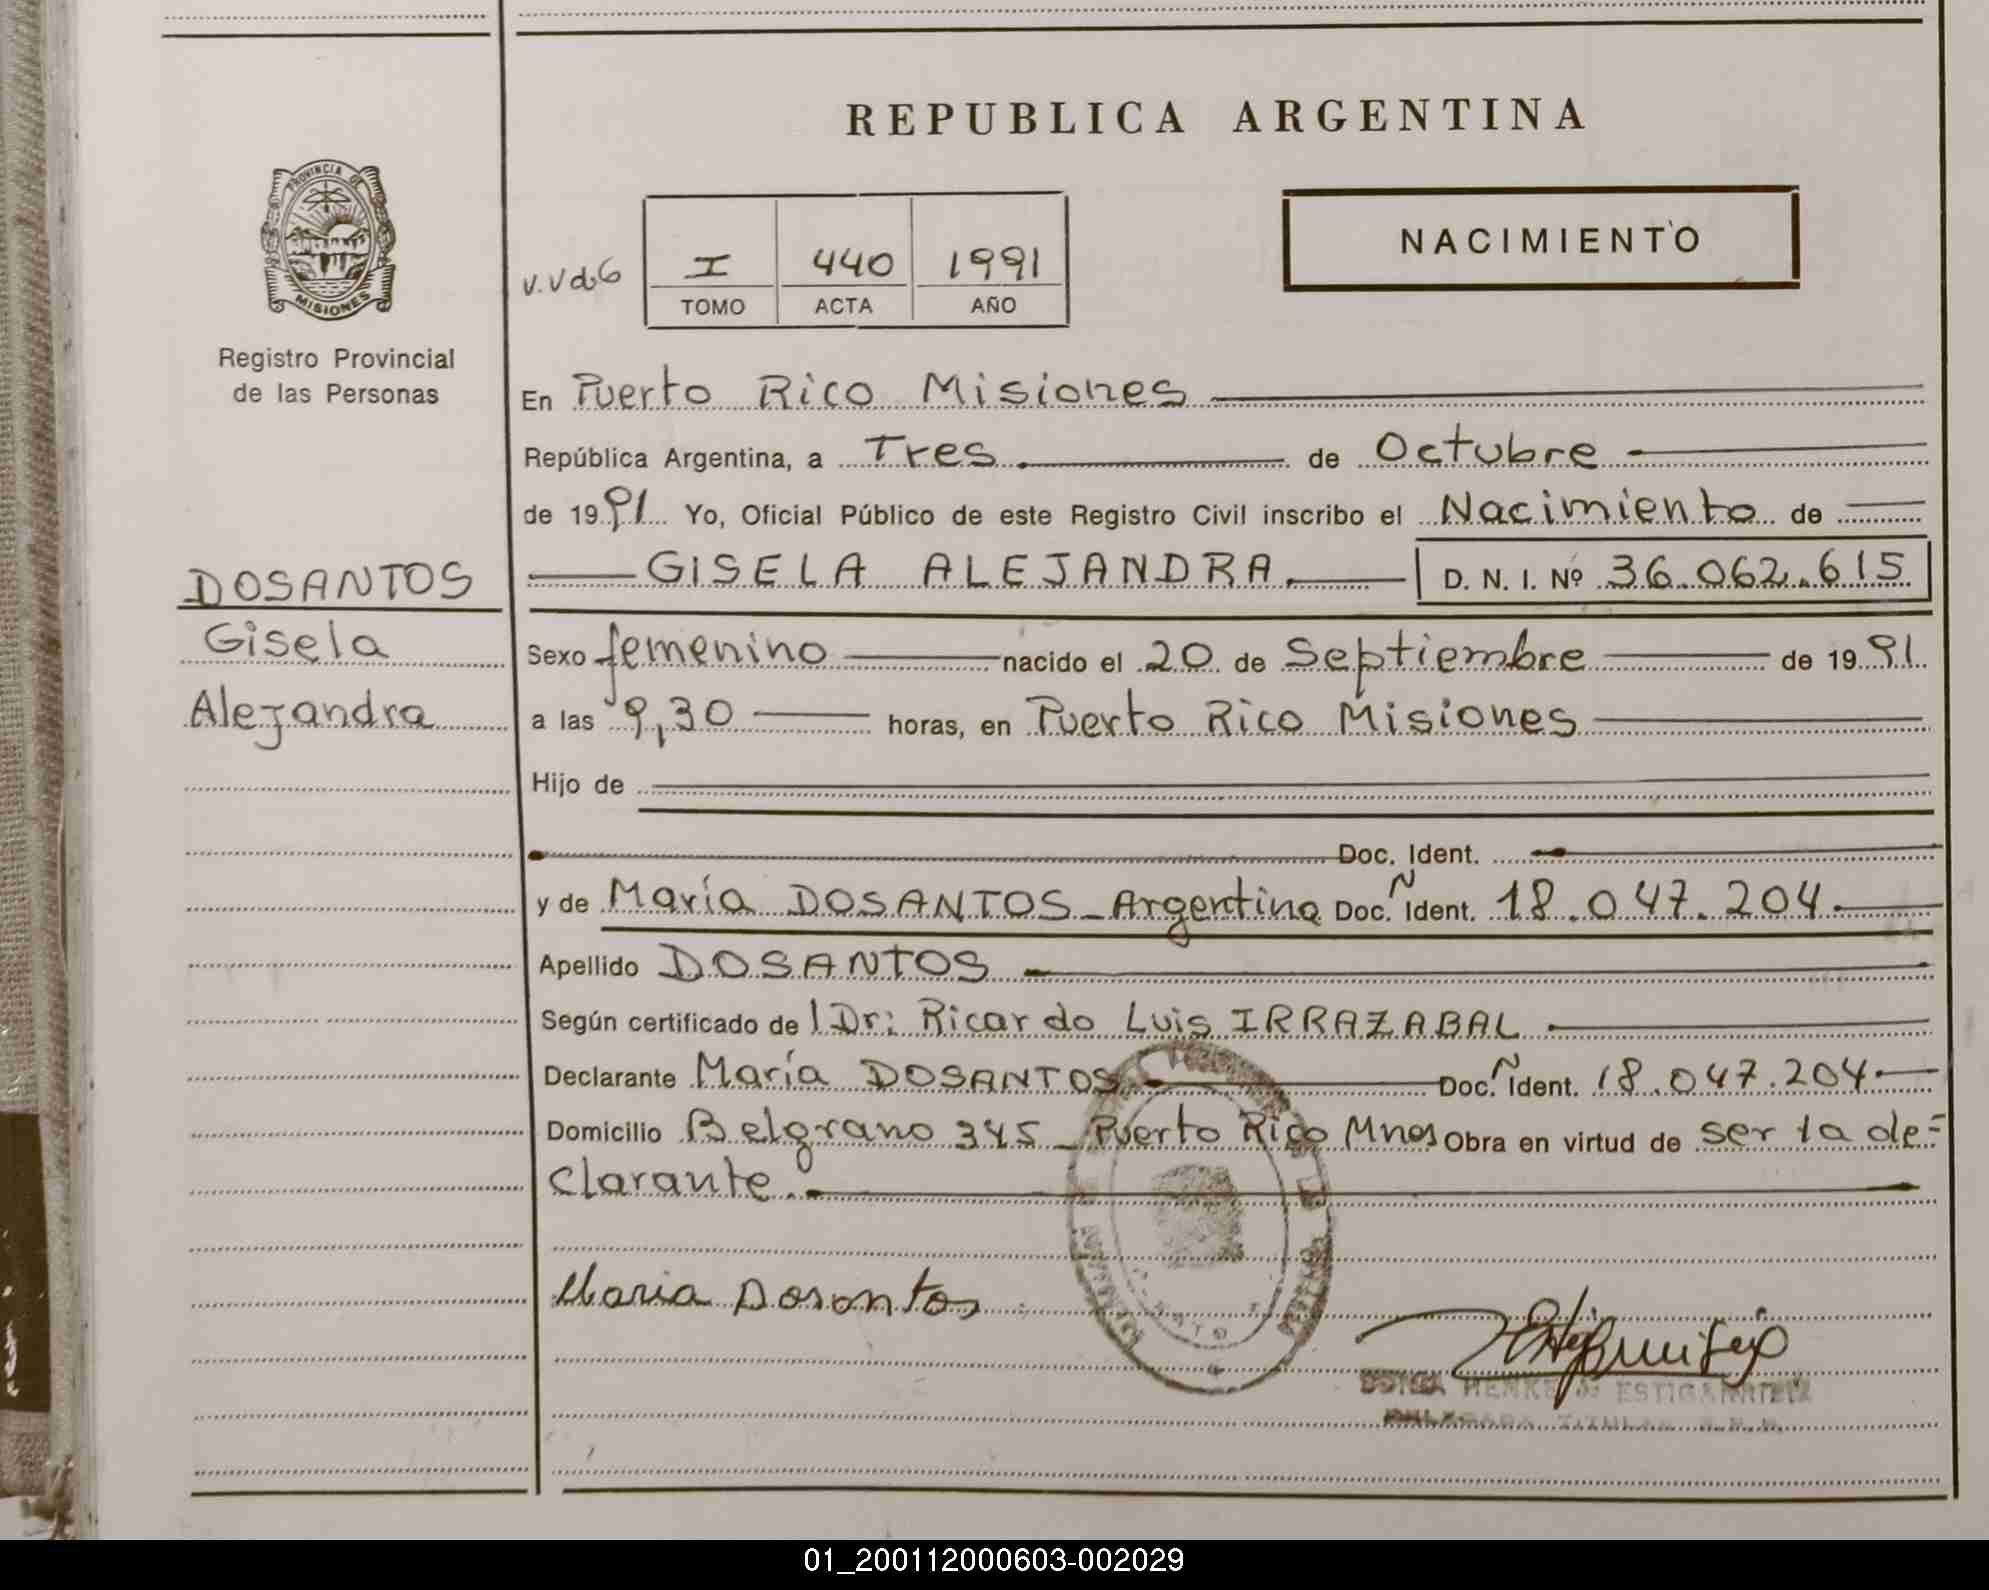 REPUBLICA ARGENTINA
PROVINCIA DE
MISIONES
Registro Provincial
de las Personas
NACIMIENTO
I 440 1991
TOMO ACTA AÑO
En Puerto Rico Misiones
República Argentina, a Tres de Octubre
de 1991 Yo, Oficial Público de este Registro Civil inscribo el Nacimiento de
DOSANTOS
Gisela
Alejandra
GISELA ALEJANDRA D. N. I. Nº 36.062.615
Sexo femenino nacido el 20 de Septiembre de 1991
a las 9,30 horas, en Puerto Rico Misiones
Hijo de
Doc. Ident.
y de María DOSANTOS - Argentina Doc. Ident. 18.047.204.
Apellido DOSANTOS
Según certificado de l Dr: Ricardo Luis IRRAZABAL
Declarante María DOSANTOS Doc. Ident. 18.047.204
Domicilio Belgrano 345 - Puerto Rico Mnes Obra en virtud de ser la de=
clarante.
Maria Dosantos
HENKE DE ESTIGARRIBIA
DELEGADA TITULAR
01_200112000603-002029